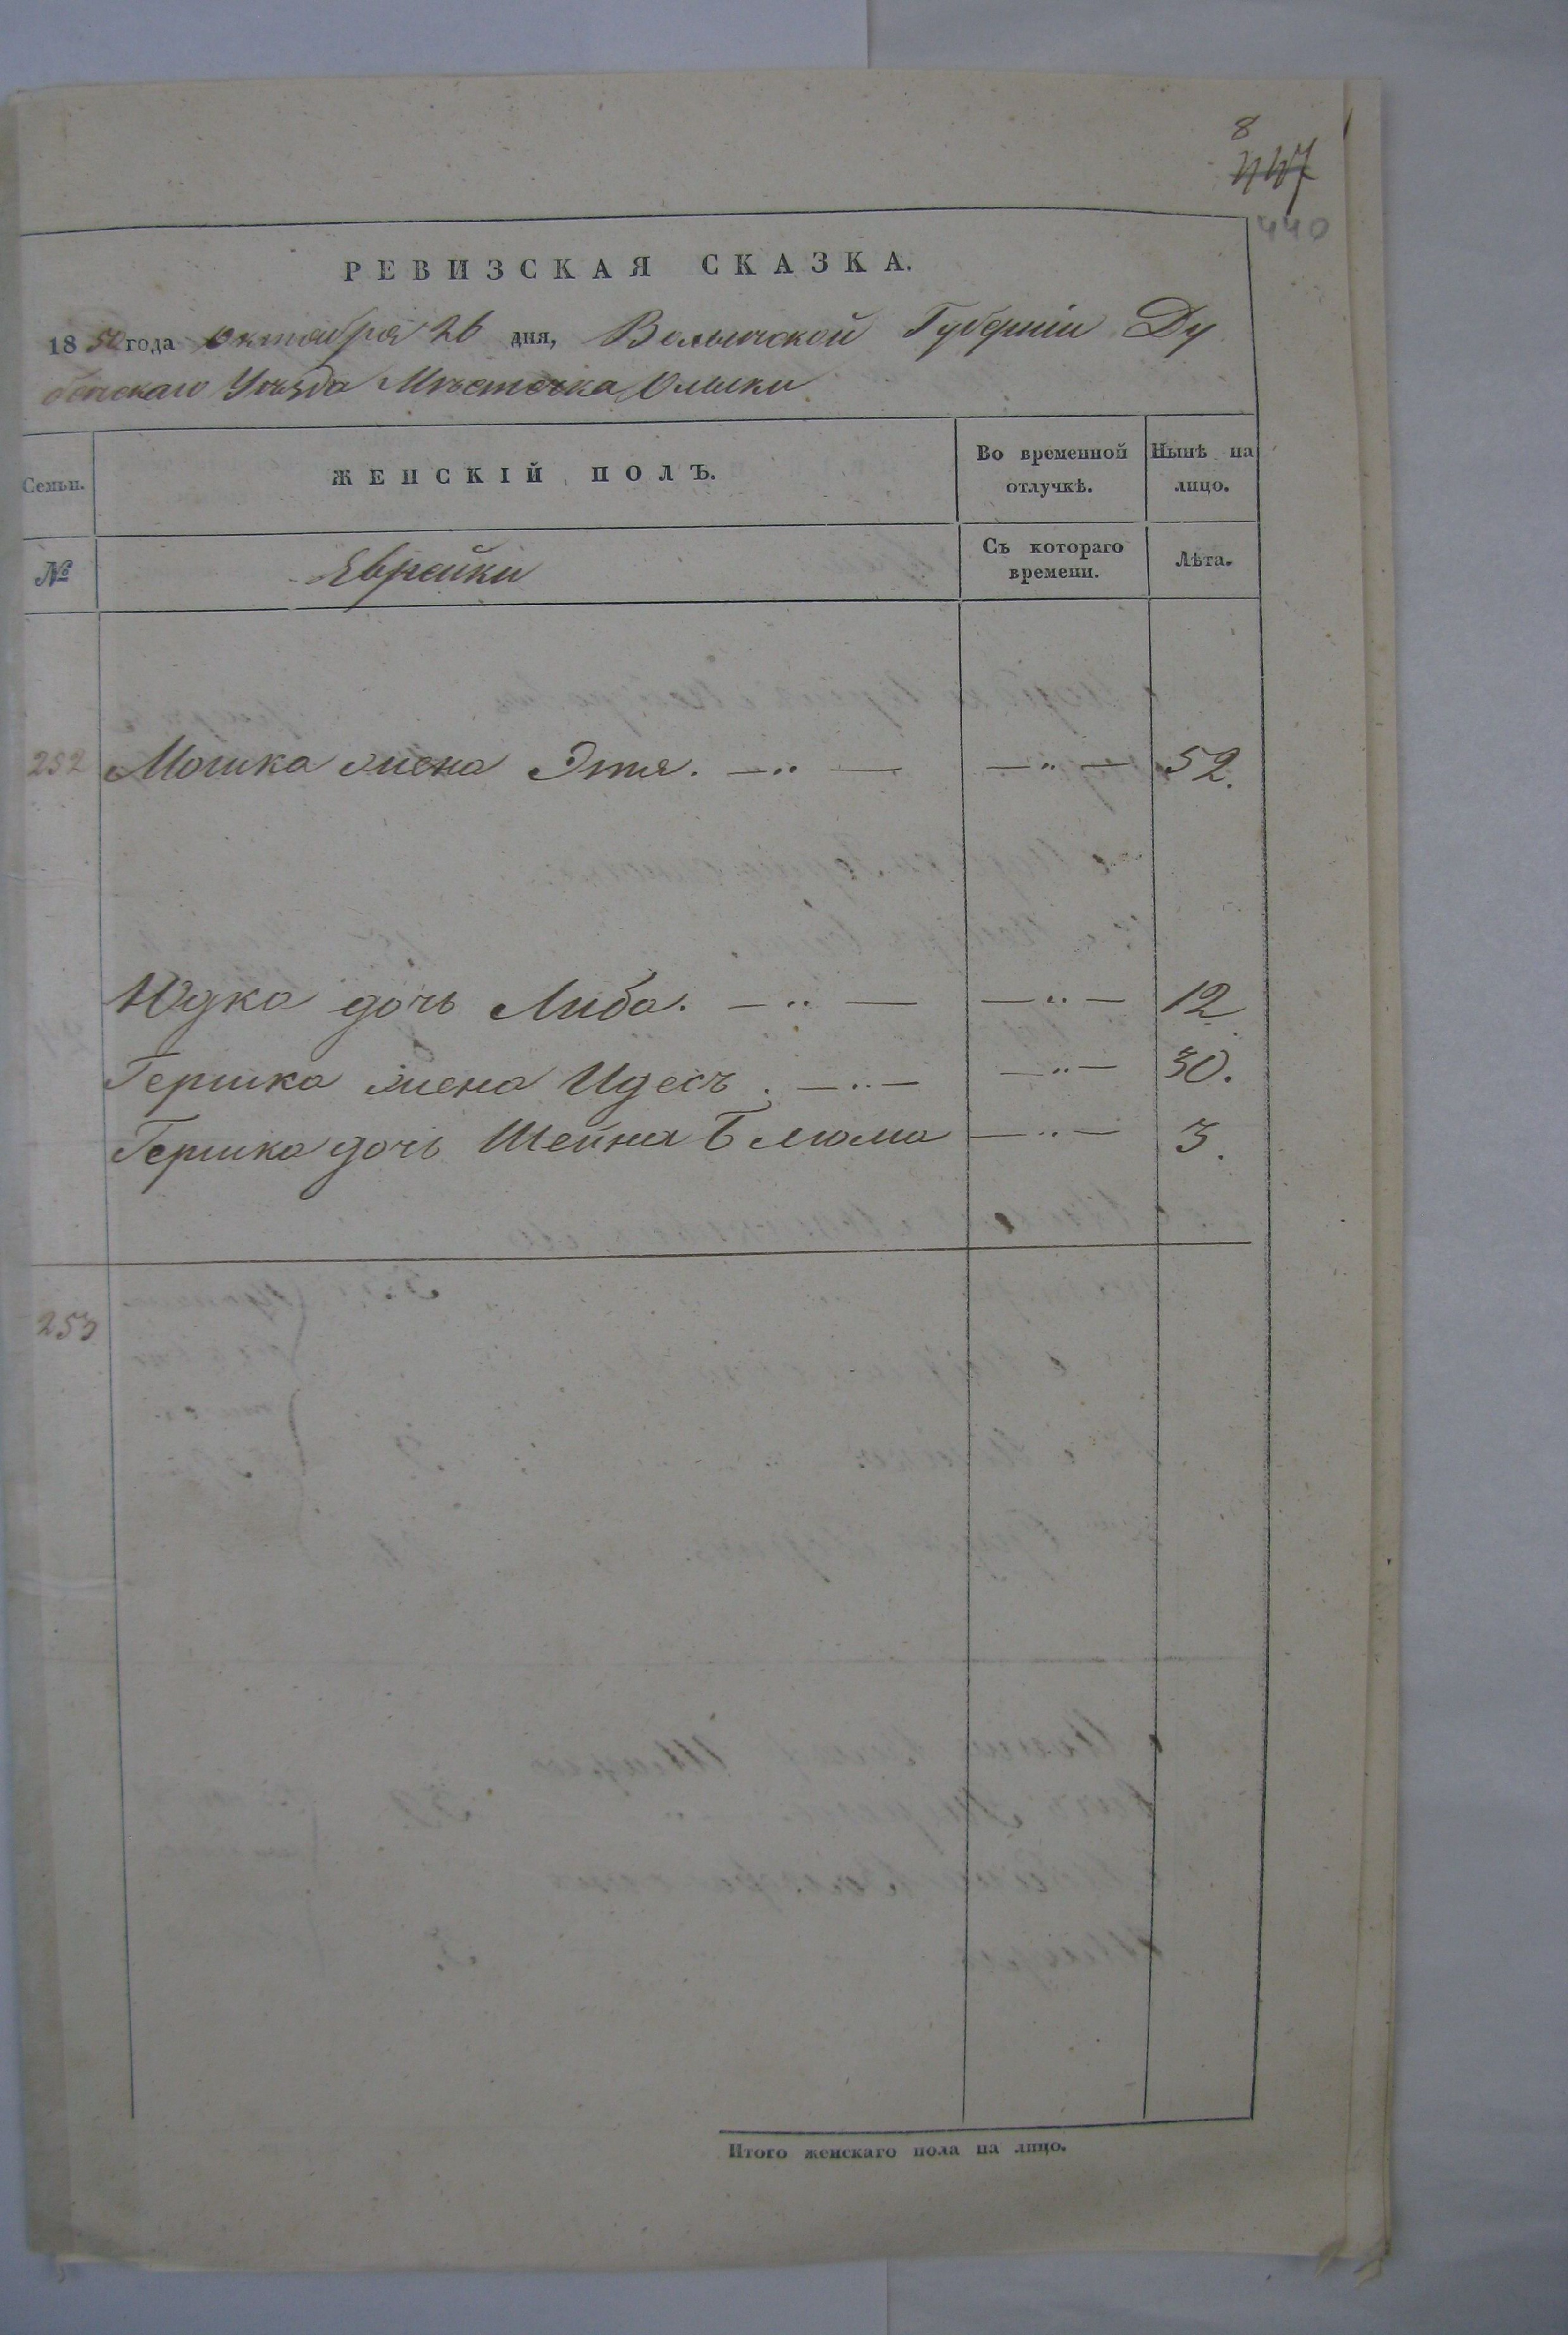 8
447
440
РЕВИЗСКАЯ СКАЗКА.
1850 года Октября 26 дня, Волынской Губерніи Ду
бенскаго Уѣзда Мѣстечка Олыки
Семьи.
ЖЕНСКІЙ ПОЛЪ.
Во временной отлучкѣ.
Нынѣ на лицо.
№
Еврейки
Съ котораго времени.
Лѣта.
252 Мошка жена Этя. — " — — " — 52.
Юдка дочь Либа. — " — — " — 12
Гершка жена Идесъ. — " — — " — 30.
Гершка дочь Шейна Блюма — " — 3.
253
Итого женскаго пола на лицо.